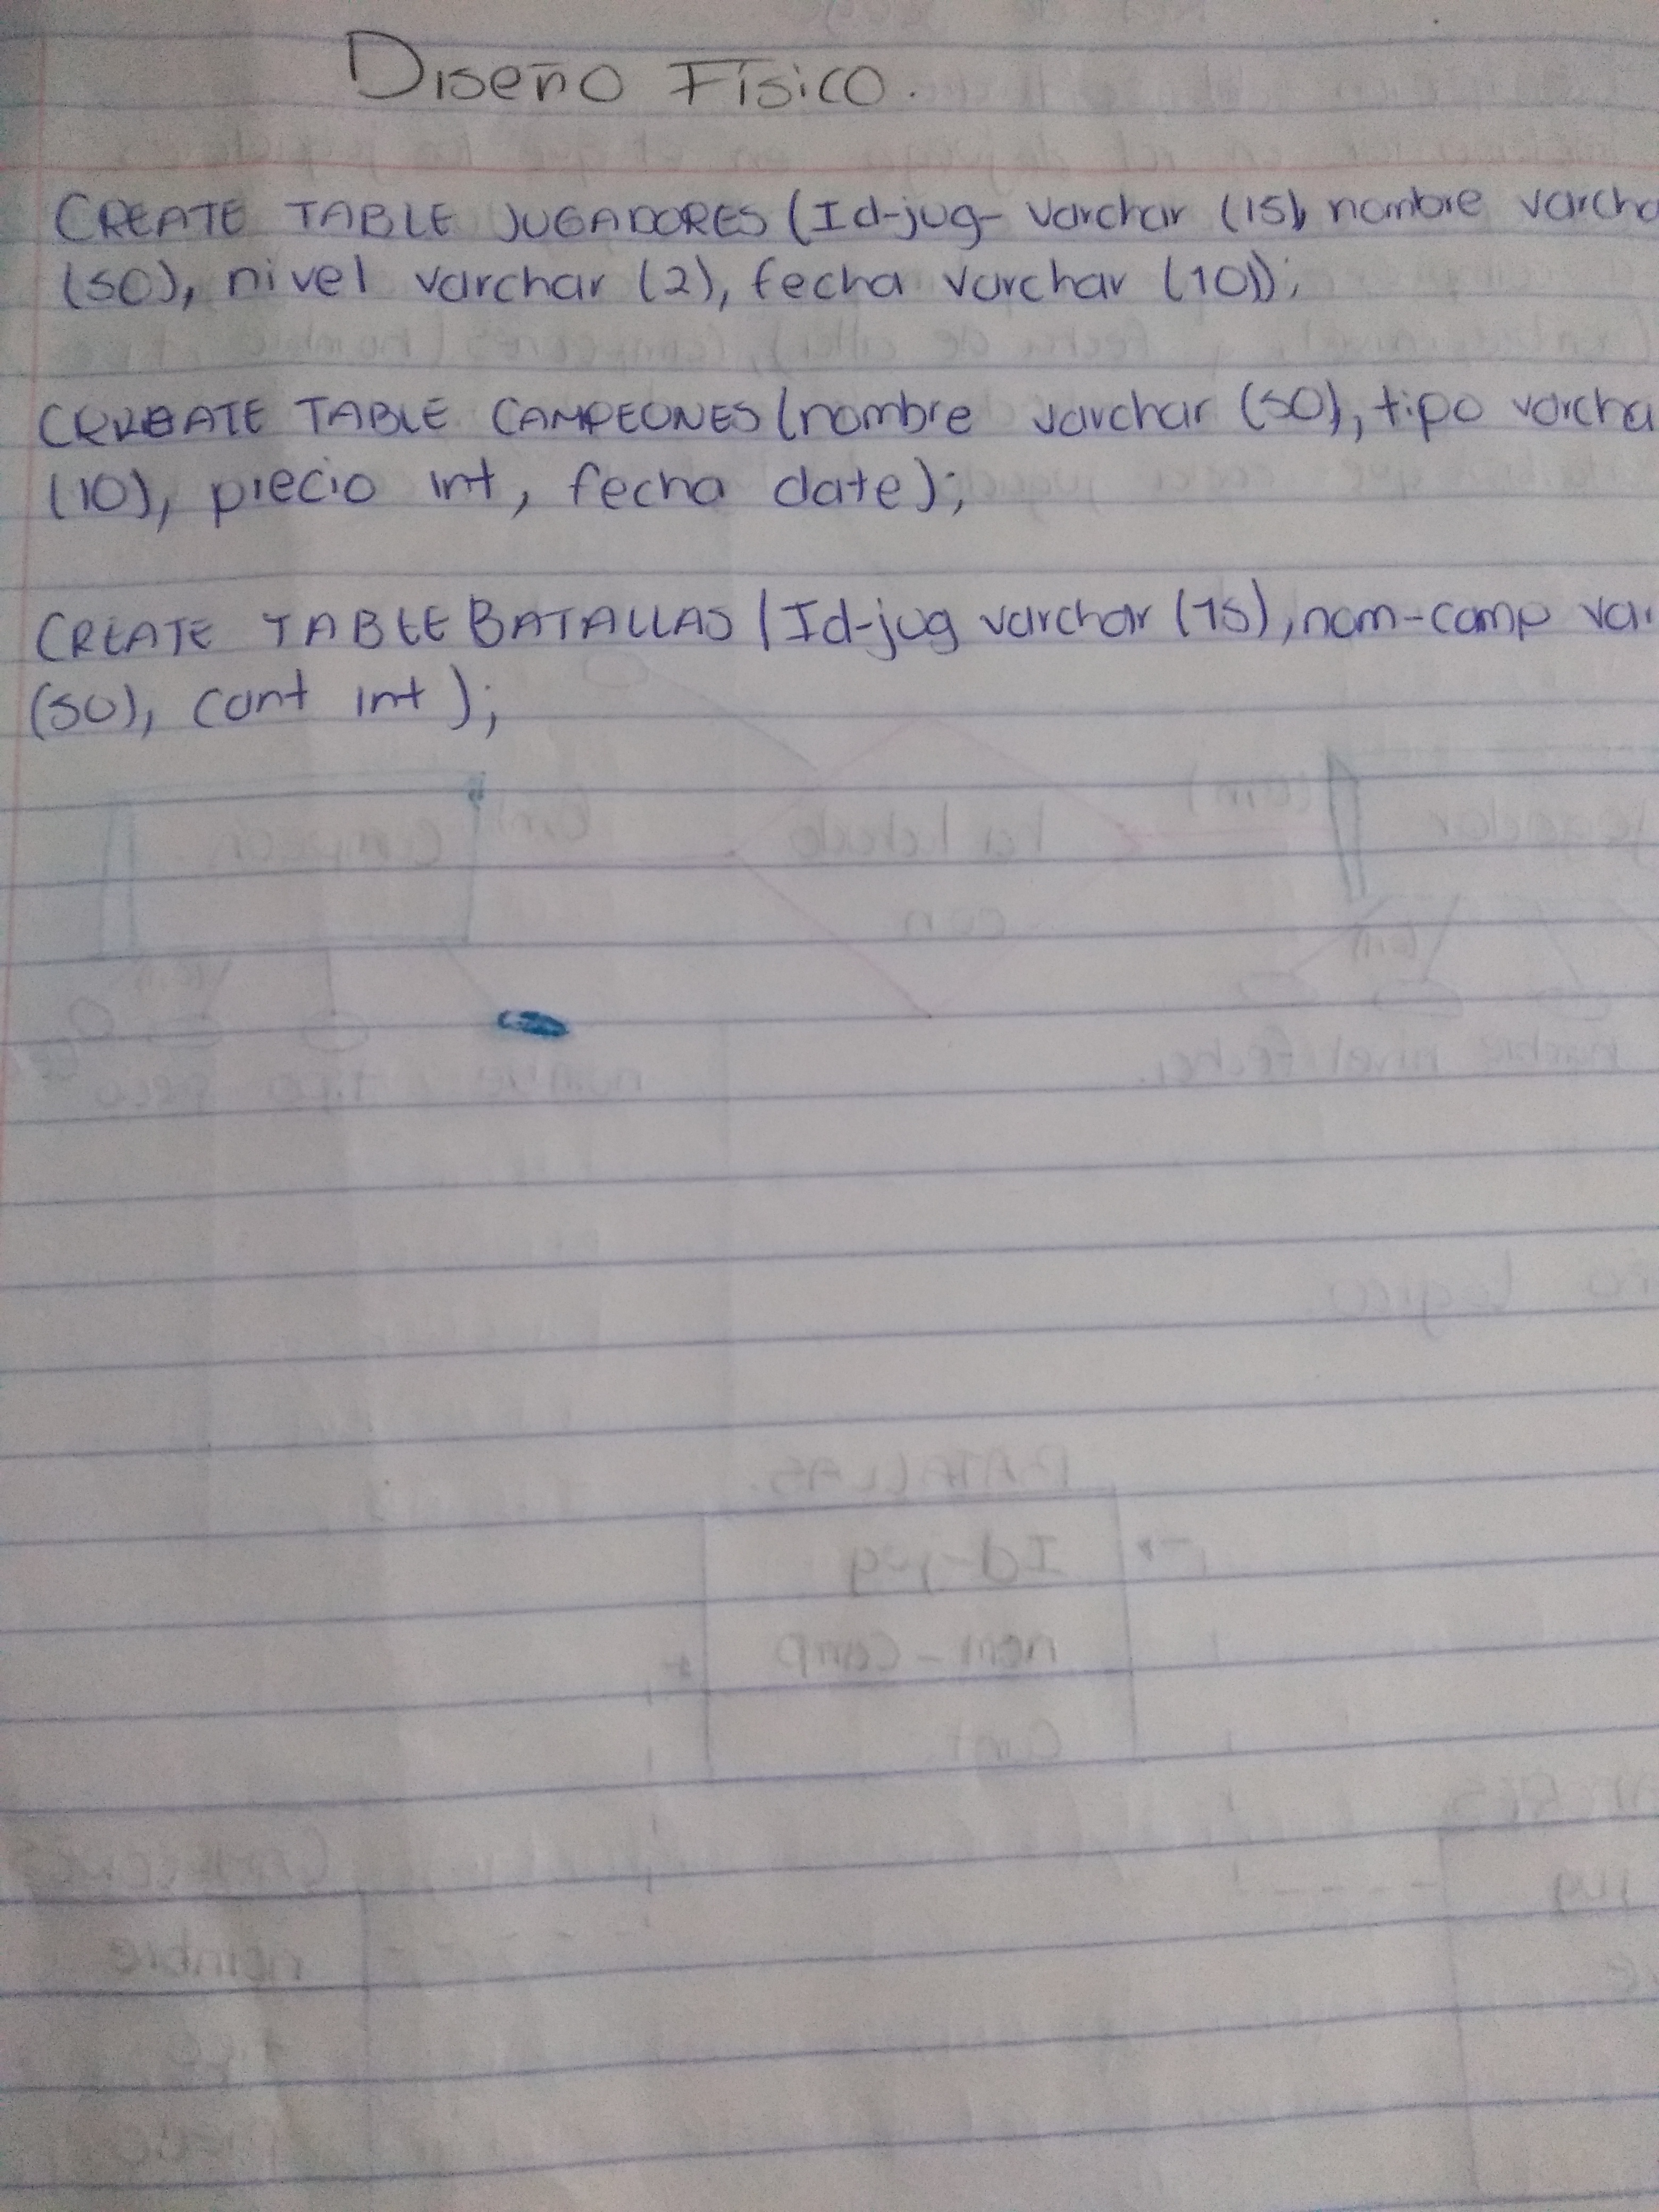 Diseño Físico.
CREATE TABLE JUGADORES (Id-jug- varchar (15), nombre varcha
(50), nivel varchar (2), fecha varchar (10));
CREATE TABLE CAMPEONES (nombre varchar (50), tipo varcha
(10), precio int, fecha date);
CREATE TABLE BATALLAS (Id-jug varchar (15), nom-camp var
(50), cant int);